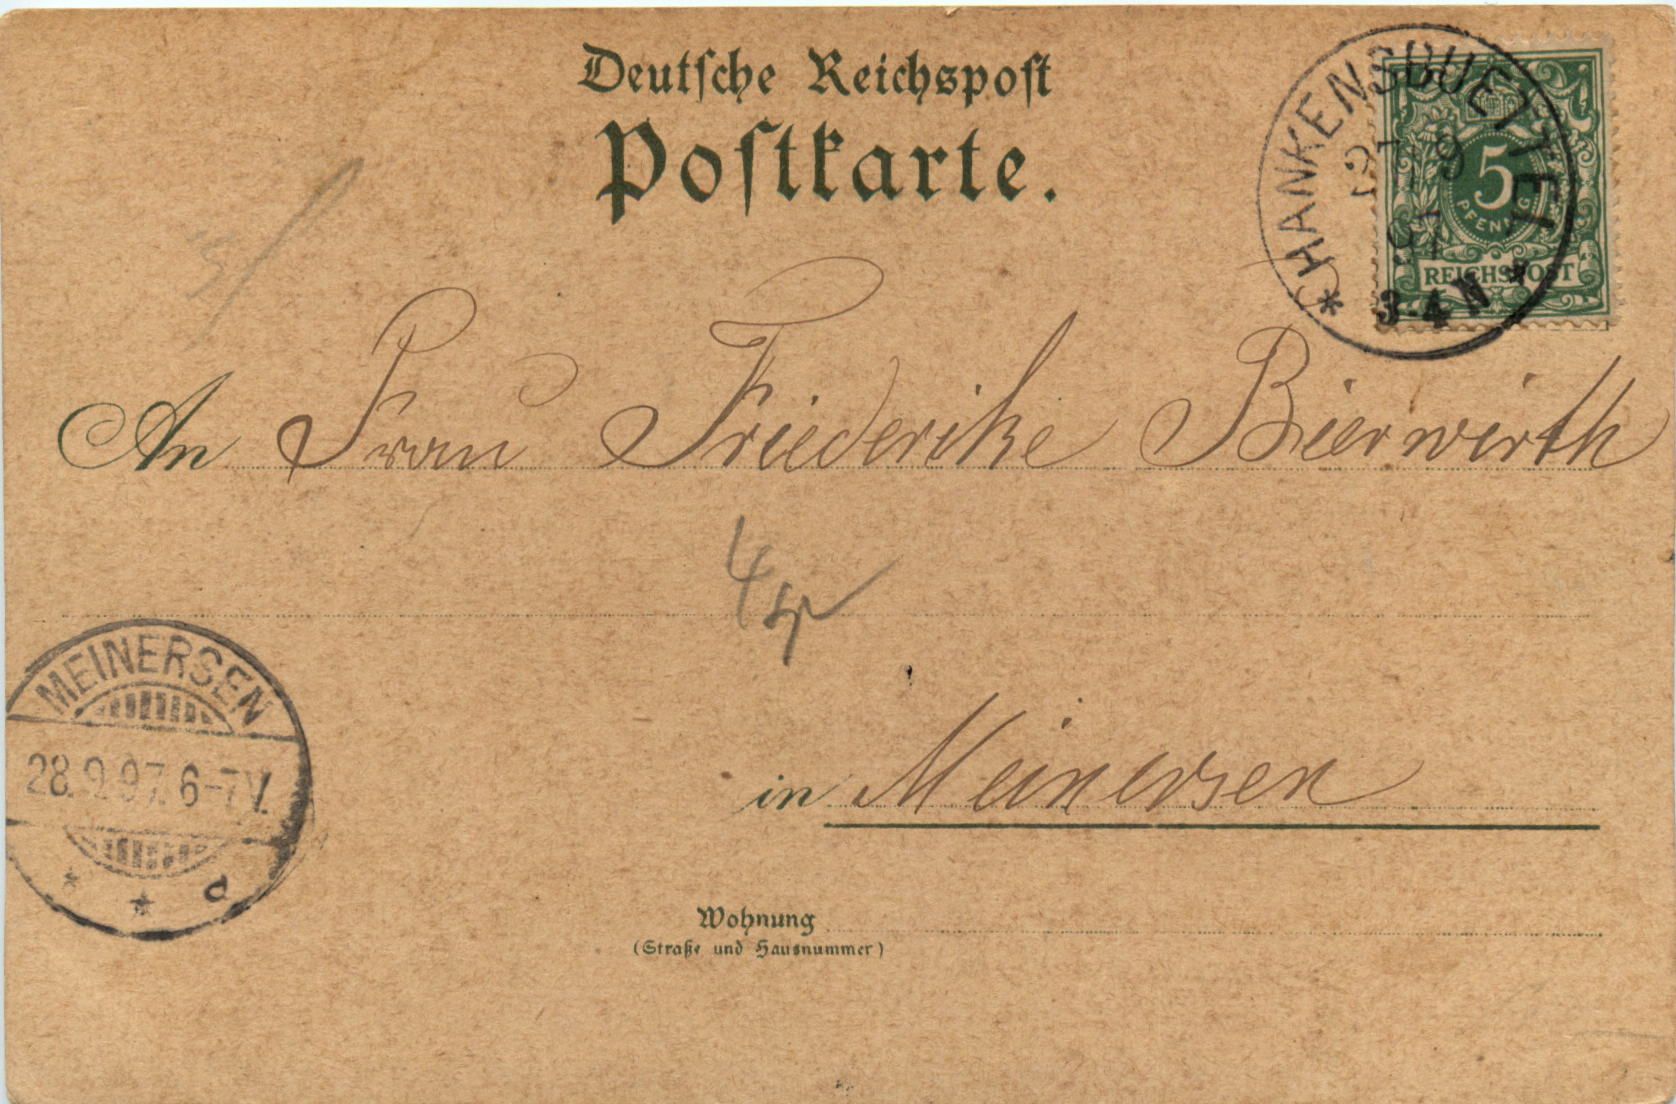 Deutsche Reichspost
Postkarte.
* HANKENSBUETTEL *
27 9
97
3-4 N
5
PFENNIG
REICHSPOST
An Frau Friederike Bierwirth
MEINERSEN
28.9.97. 6-7 V.
* * a
in Meinersen
Wohnung
(Straße und Hausnummer)